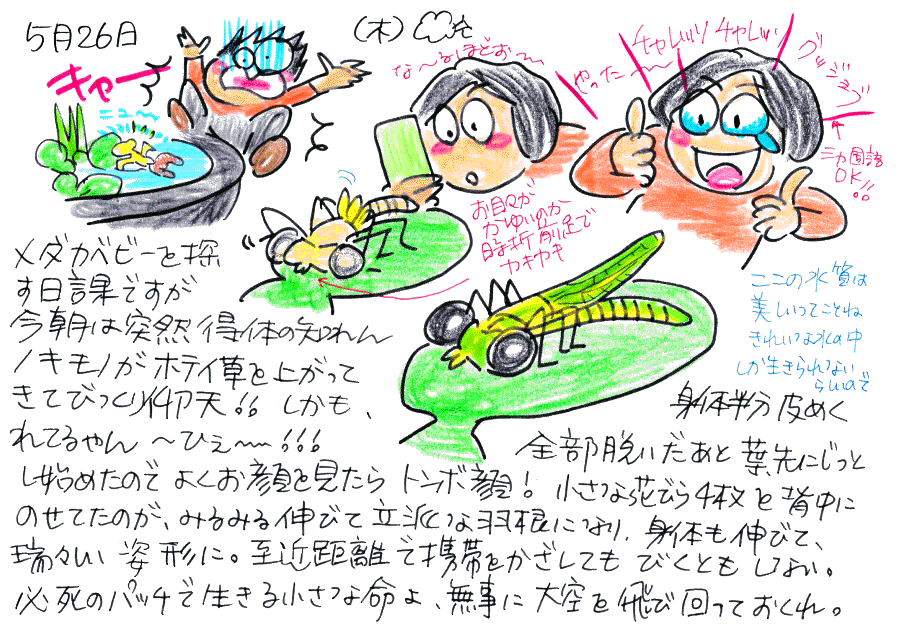 5月26日
(木)
キャー
ニュ〜
な〜るほどぉ〜
やった〜
チャレッソ チャレッソ
グッジョブ
三カ国語
OK!!
お目々が
かゆいのか
時折前足で
カキカキ
ここの水質は
美しいってことね
きれいな水の中
しか生きられない
らしいので
メダカベビーを探
す日課ですが
今朝は突然得体の知れん
イキモノがホテイ草を上がって
きてびっくり仰天!! しかも、
身体半分皮めく
れてるやん 〜ひぇ〜!!!
全部脱いだあと葉先にじっと
し始めたのでよくお顔を見たらトンボ顔! 小さな花びら4枚を背中に
のせてたのが、みるみる伸びて立派な羽根になり、身体も伸びて、
瑞々しい姿形に。至近距離で携帯をかざしてもびくともしない。
必死のパッチで生きる小さな命よ、無事に大空を飛び回っておくれ。